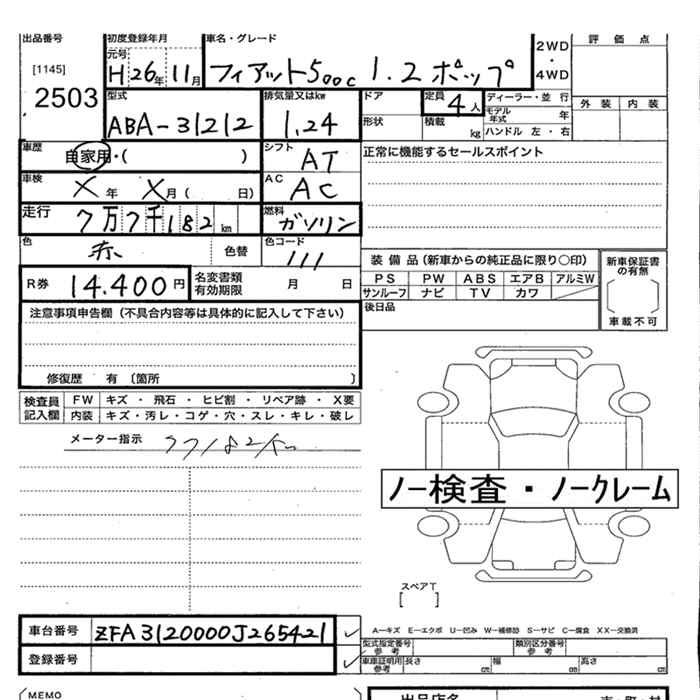 出品番号 初度登録年月 車名・グレード 2WD・4WD 評価点
[1145] 元号 H 26年 11月 フィアット500c 1.2 ポップ
2503
型式 排気量又はkw ドア 定員 4人 ディーラー・並行 外装 内装
ABA-31212 1.24 形状 積載 kg モデル年式 年
ハンドル 左・右
車歴 自家用・( ) シフト AT 正常に機能するセールスポイント
車検 X年 X月( 日) AC AC
走行 7万7千182km 燃料 ガソリン
色 赤 色替 色コード 111
装備品(新車からの純正品に限り○印) 新車保証書の有無
R券 14.400円 名変書類有効期限 月 日
PS PW ABS エアB アルミW
サンルーフ ナビ TV カワ
後日品 車載不可
注意事項申告欄(不具合内容等は具体的に記入して下さい)
修復歴 有〔箇所 〕
検査員記入欄 FW キズ・飛石・ヒビ割・リペア跡・X要
内装 キズ・汚レ・コゲ・穴・スレ・キレ・破レ
メーター指示 77182km
ノー検査・ノークレーム
スペアT
[ ]
車台番号 ZFA3120000J265421
A―キズ E―エクボ U―凹み W―補修跡 S―サビ C―腐食 XX―交換済
型式指定番号 参考 類別区分番号 参考
登録番号 車庫証明用参考 長さ cm 幅 cm 高さ cm
MEMO 出品店名